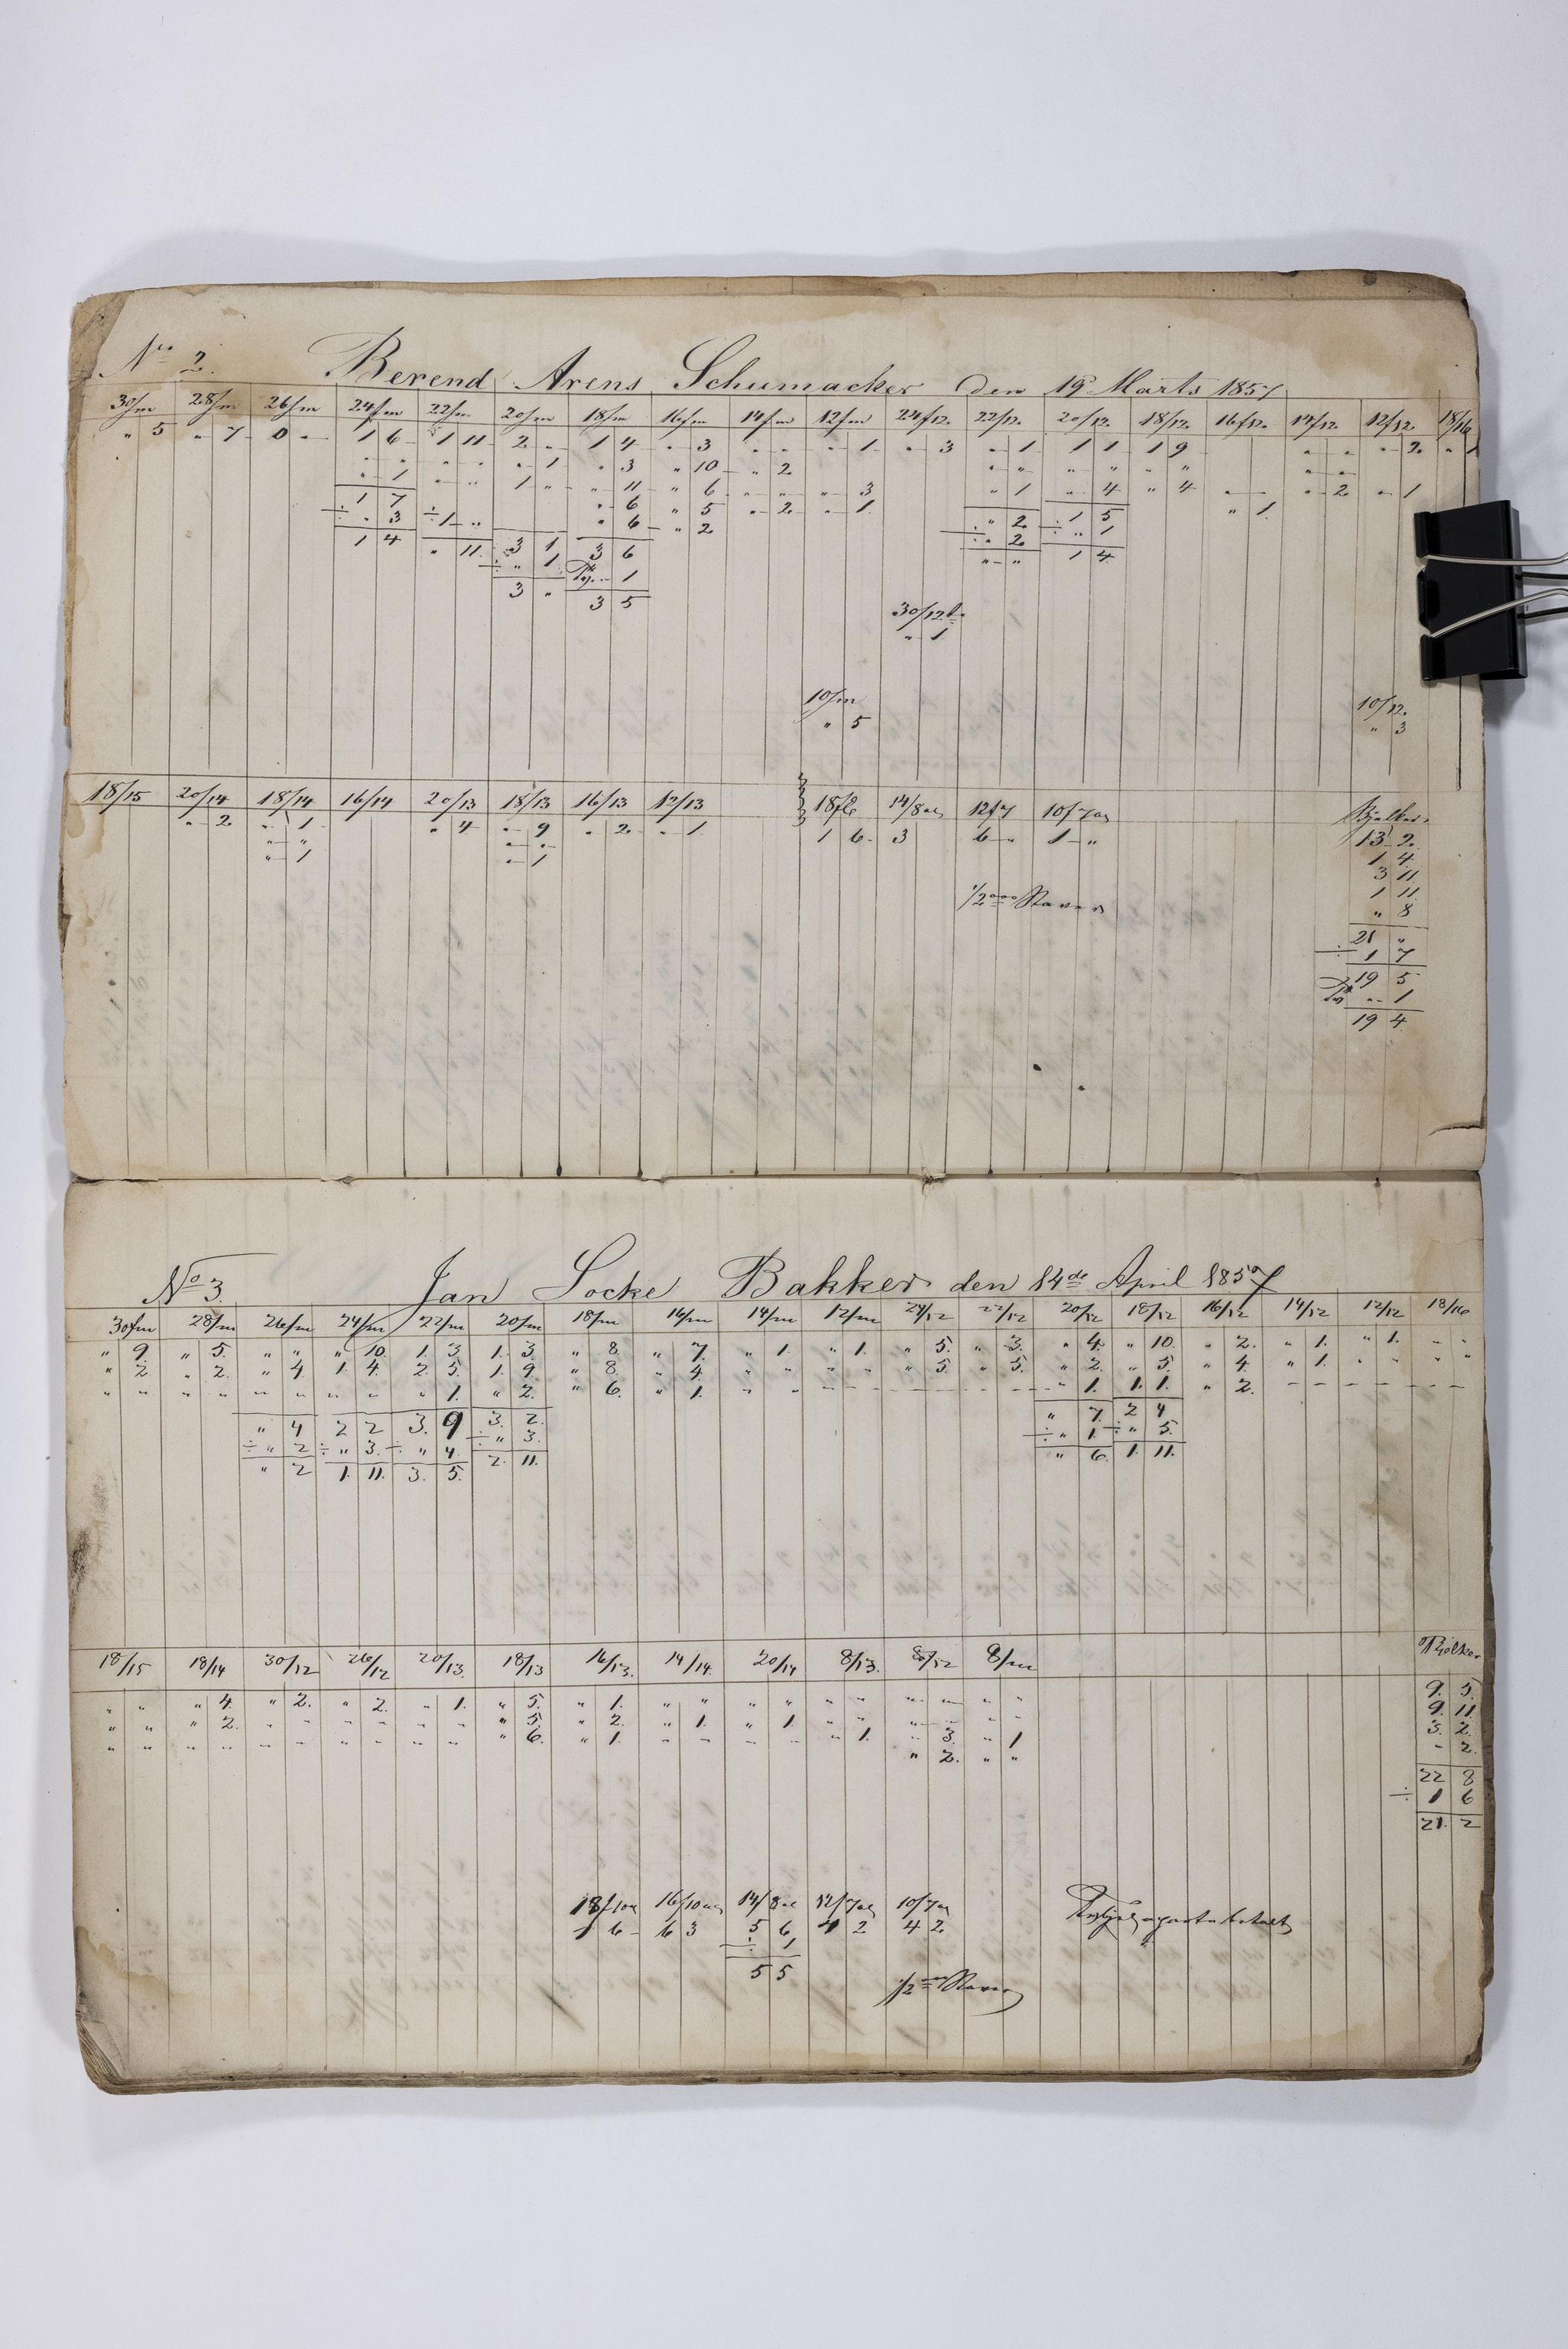 No 2. Berend Arens Schumacher den 19 Marts 1857
30/m 28/m 26/m 24/m 22/m 20/m 18/m 16/m 14/m 12/m 24/12 22/12 20/12 18/12 16/12 14/12 12/12 18/16
" 5 " 7 0 " 1 6 1 11 2 " 1 4 " 3 " " " 1 " 3 " 1 1 1 1 9 " " " 2
" " " " " 1 " 3 " 10 " 2 " " " " " " " "
" 1 " " 1 " " 11 " 6 " " " 3 " 1 " 4 " 4 " " " 2 " 1
1 7 " 6 " 5 " 2 " 1 " 2 1 5 " 1
÷ " 3 ÷ 1 " " 6 " 2 ÷ " 2 ÷ " 1
1 4 " 11 3 1 3 6 " " 1 4
÷ " 1 " 1
3 " 3 5
30/12
" 1
10/m 10/12
" 5 " 3
18/15 20/14 18/14 16/14 20/13 18/13 16/13 12/13 14/8 12/7 10/7 Bjelker
" 2 " 1 " 4 " 9 " 2 " 1 1 6 3 6 " 1 " 13 2
" " " " 1 4
" 1 " 1 3 11
1/2 Staver 1 11
" 8
21 "
÷ 1 7
19 5
" 1
19 4
No 3. Jan Locke Bakker den 14de April 1857
30/m 28/m 26/m 24/m 22/m 20/m 18/m 16/m 14/m 12/m 24/12 22/12 20/12 18/12 16/12 14/12 12/12 18/16
" 9. " 5. " " " 10. 1. 3. 1. 3 " 8. " 7. " 1. " 1. " 5. " 3. " 4. " 10. " 2. " 1. " 1. " "
" 2. " 2. " 4. 1. 4. 2. 5. 1. 9. " 8. " 4. " " " " " 5. " 5. " 2. " 5. " 4. " 1. " " " "
" " " " " " " " " 1. " 2. " 6. " 1. " " " 1. 1. 1. " 2.
" 4 2 2 3. 9 3. 2. " 7. 2 4
÷ " 2 ÷ " 3. ÷ " 4. ÷ " 3. ÷ " 1. ÷ " 5.
" 2 1. 11. 3. 5. 2. 11. " 6. 1. 11.
18/15 18/14 30/12 26/12 20/13 18/13 16/13. 14/14. 20/14 8/13. 8/12 8/m Bjelker
" " " 4. " 2. " 2. " 1. " 5. " 1. " " " " " " " " " " 9. 5.
" " " 2. " " " " " " " 5. " 2. " 1. " 1. " " " " " " 9. 11.
" " " " " " " " " " " 6. " 1. " " " " " 1. " 3. " 1 3. 2.
" 2. " " " 2.
22 8
÷ 1 6
21. 2
18/10 16/10 14/8 12/7 10/7
1 6 6 3 5 6 4 2 4 2
÷ 1
5 5
1/2 Staver